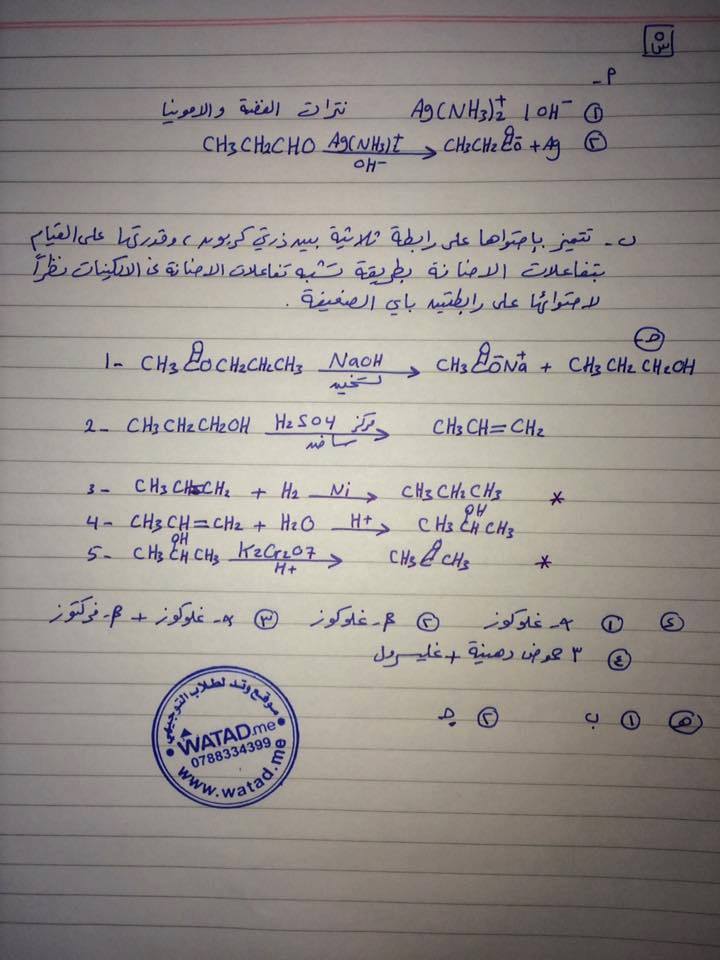 س٥
أ-
① Ag(NH3)2+ / OH- نترات الفضة والامونيا
② CH3CH2CHO Ag(NH3)2+ OH- → CH3CH2CO-O- + Ag
ب- تتميز باحتواها على رابطة ثلاثية بين ذرتي كربون، وقدرتها على القيام
بتفاعلات الاضافة بطريقة تشبه تفاعلات الاضافة في الالكينات نظراً
لاحتوائها على رابطتين باي الضعيفة.
ج-
1- CH3COOCH2CH2CH3 NaOH تسخين → CH3COO-Na+ + CH3CH2CH2OH
2- CH3CH2CH2OH H2SO4 مركز ساخن → CH3CH=CH2
3- CH3CH=CH2 + H2 Ni → CH3CH2CH3 *
4- CH3CH=CH2 + H2O H+ → CH3CHCH3 OH
5- CH3CHCH3 OH K2Cr2O7 H+ → CH3COCH3 *
د ① α- غلوكوز ② β- غلوكوز ③ α- غلوكوز + β- فركتوز
④ ٣ حموض دهنية + غليسرول
هـ ① ب ② جـ
موقع وتد لطلاب التوجيهي
WATAD.me
0788334399
www.watad.me